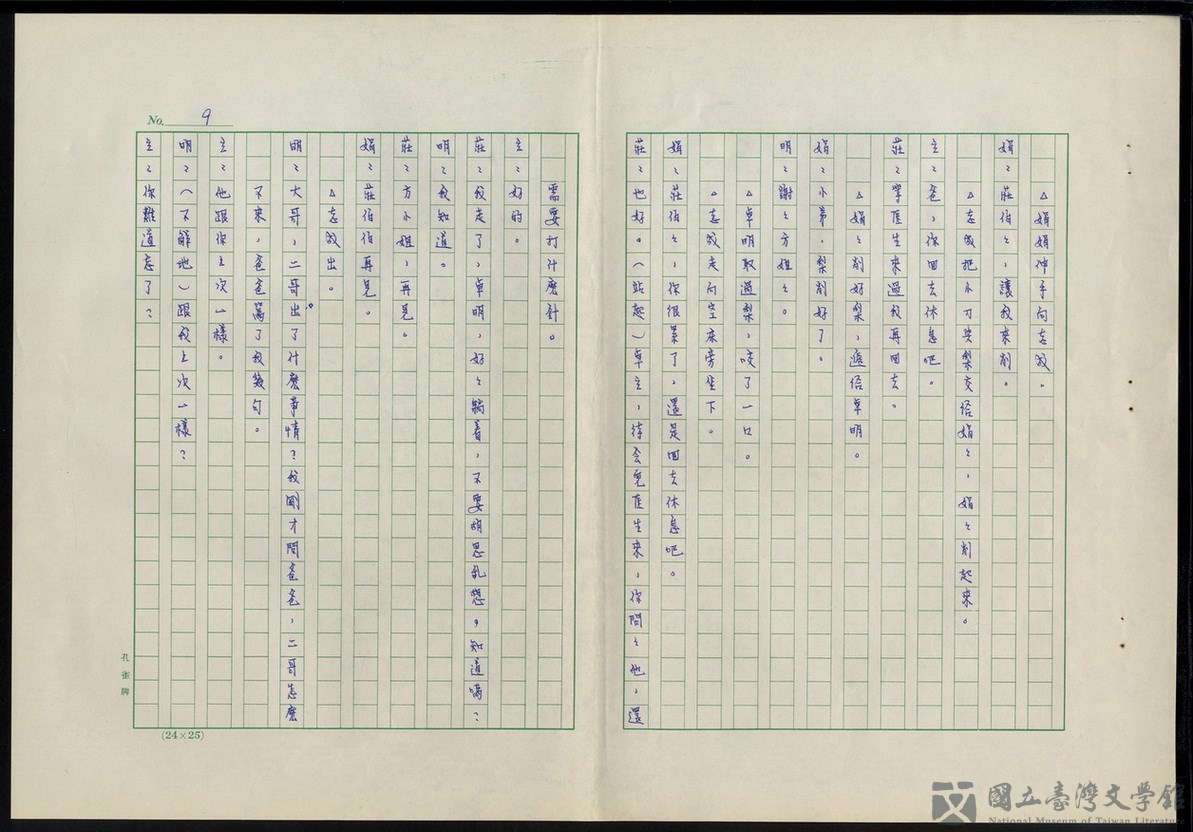 No. 9
△娟娟伸手向志毅。
娟：莊伯〻，讓我來削。
△志毅把小刀與梨交給娟〻，娟〻削起來。
主：爸，你回去休息吧。
莊：等医生來過我再回去。
△娟〻削好梨，遞給卓明。
娟：小弟，梨削好了。
明：謝〻方姐〻。
△卓明取過梨，咬了一口。
△志毅走向空床旁坐下。
娟：莊伯〻，你很累了，還是回去休息吧。
莊：也好。（站起）卓主，待会兒医生來，你問〻他，還
需要打什麼針。
主：好的。
莊：我走了，卓明，好〻躺着，不要胡思乱想，知道嗎？
明：我知道。
莊：方小姐，再見。
娟：莊伯伯再見。
△志毅出。
明：大哥，二哥出了什麼事情？我剛才問爸爸，二哥怎麼
不來，爸爸罵了我幾句。
主：他跟你上次一樣。
明：（不解地）跟我上次一樣？
主：你難道忘了？
孔雀牌
(24×25)
國立臺灣文學館
National Museum of Taiwan Literature